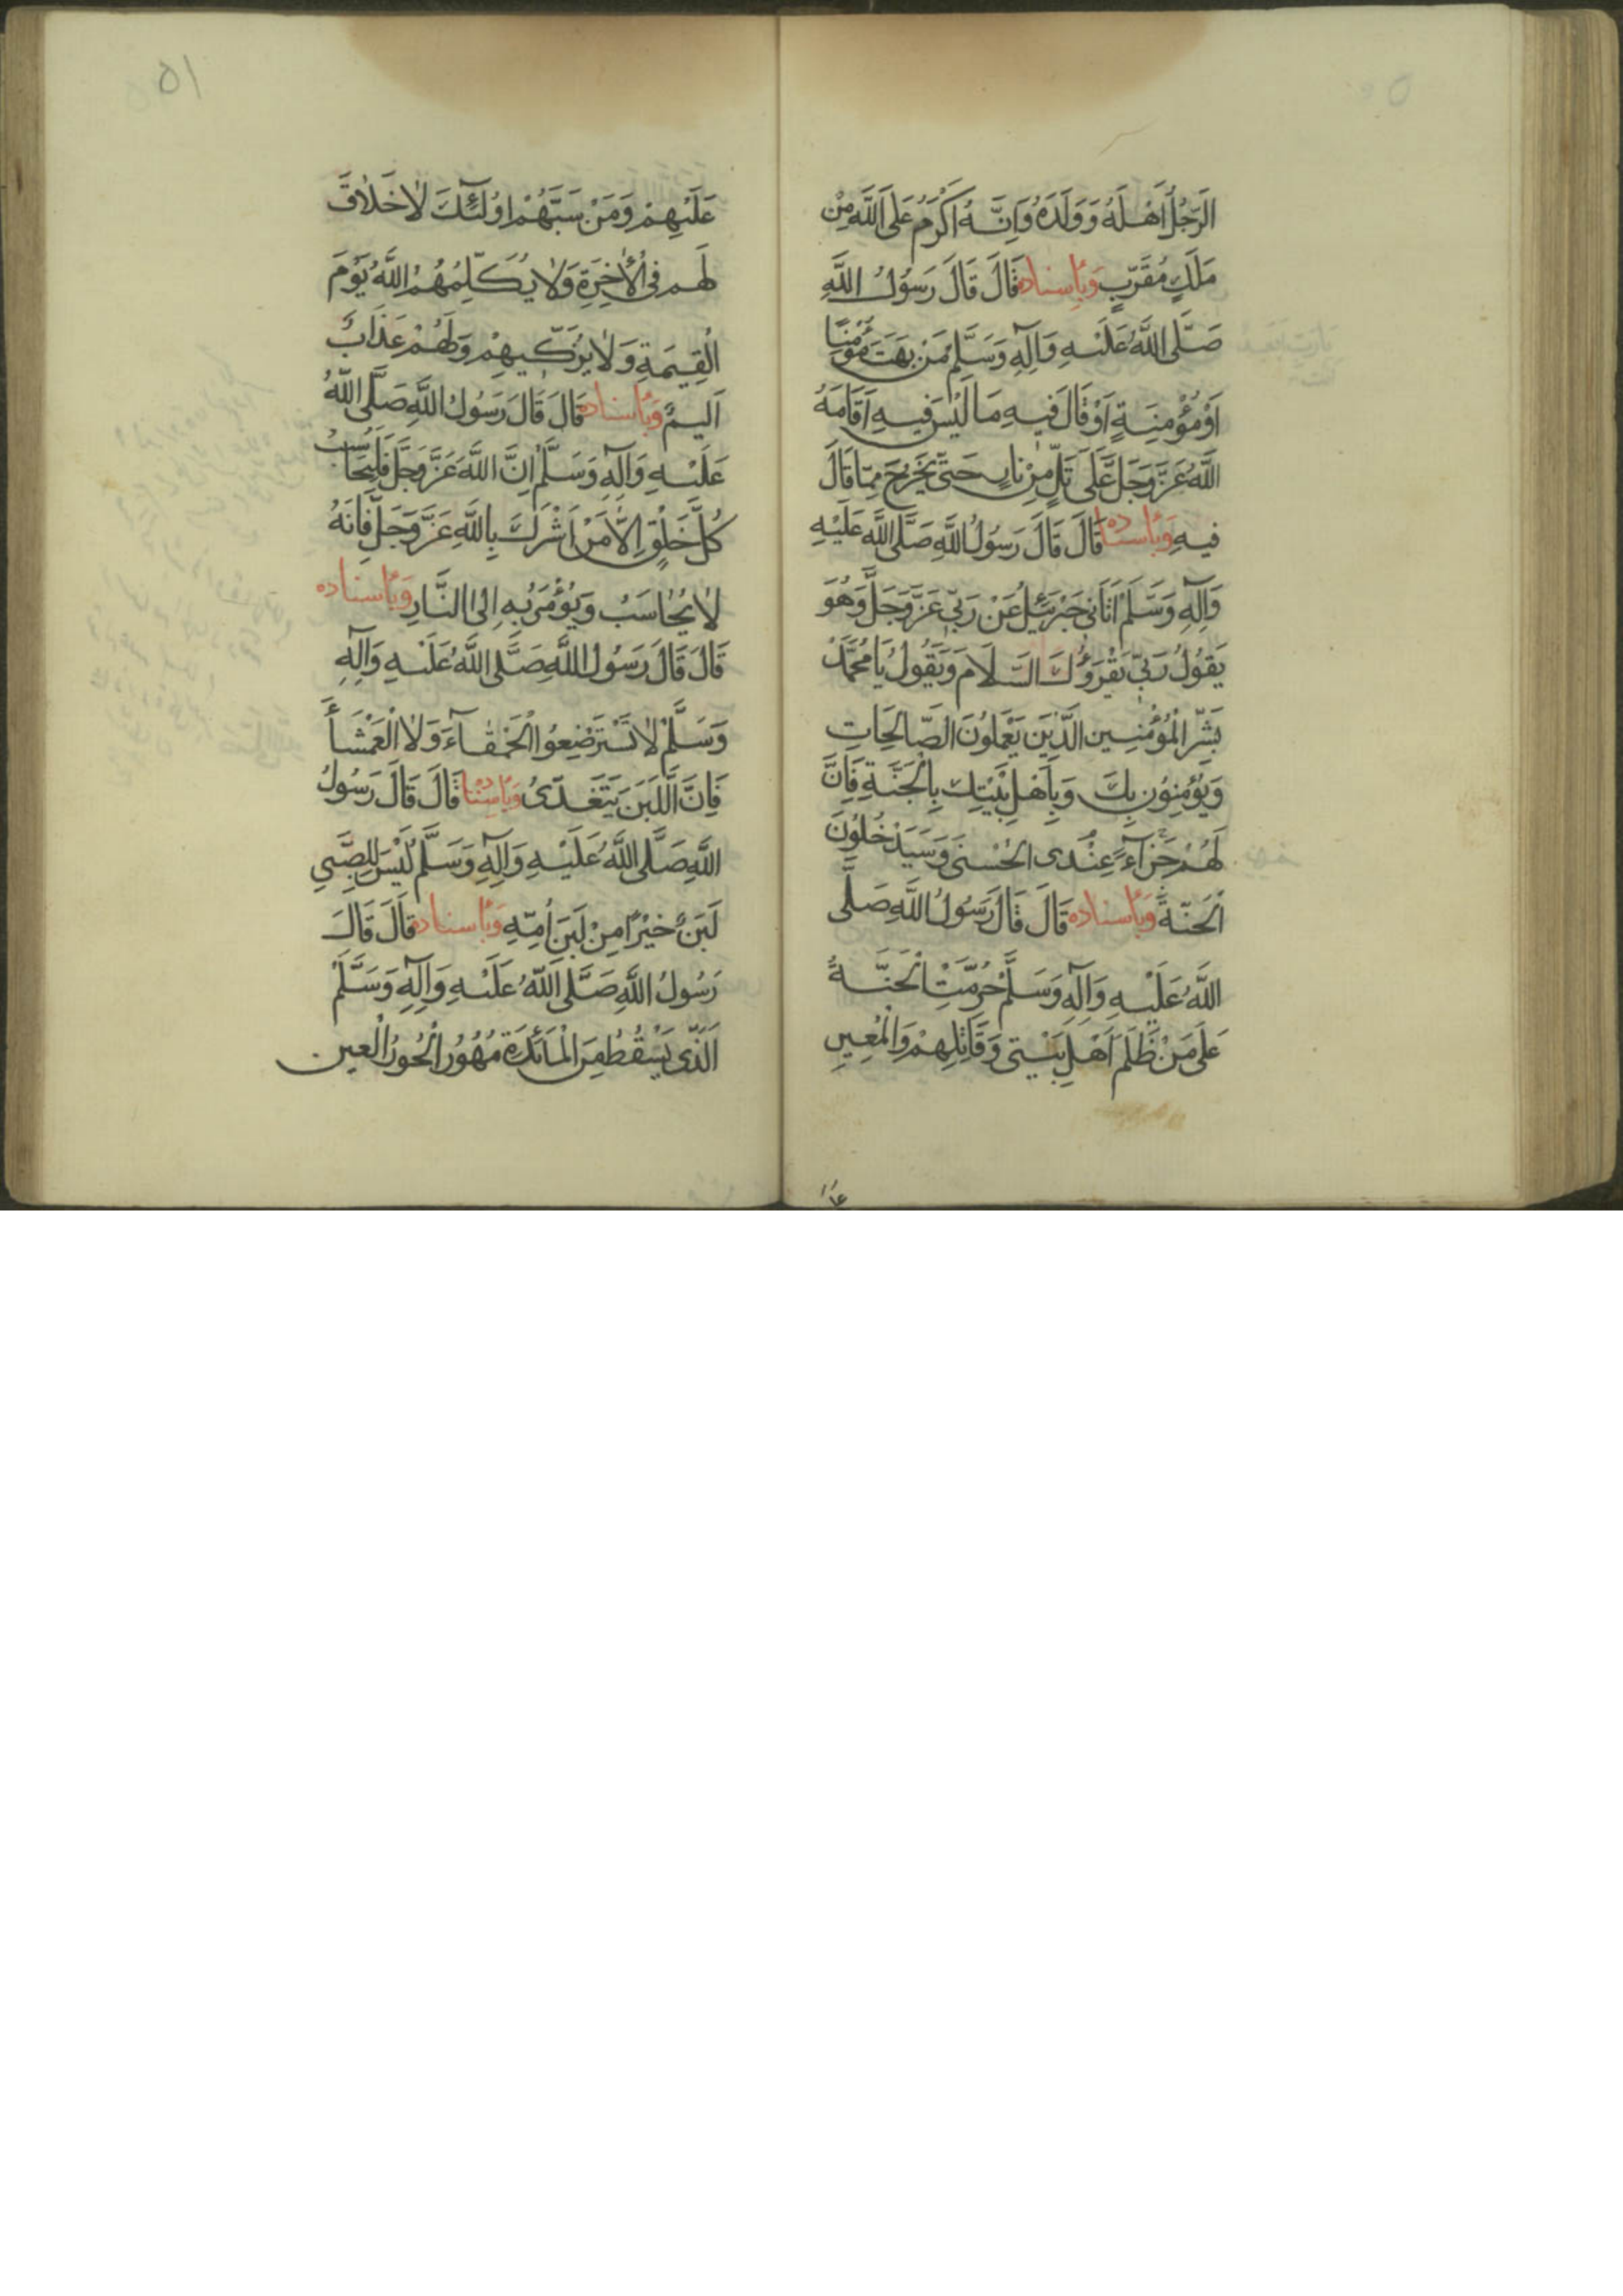 الرَّجُلُ اَهْلَهُ وَوَلَدَهُ وَاِنَّهُ اَكْرَمُ عَلَى اللَّهِ مِنْ
مَلَكٍ مُقَرَّبٍ وَبِاِسناده قَالَ قَالَ رَسُولُ اللَّهِ
صَلَّى اللَّهُ عَلَيْهِ وَآلِهِ وَسَلَّمْ مَنْ بَهَتَ مُؤْمِنًا
اَوْ مُؤْمِنَةٍ اَوْ قَالَ فيهِ مَا لَيْسَ فيهِ اَقَامَهُ
اللَّهُ عَزَّ وَجَلَّ عَلَى تَلٍّ مِنْ نارٍ حَتىّ يَخْرُجَ مِمّا قَالَ
فيهِ وَبِاسناده قَالَ قَالَ رَسُولُ اللَّهِ صَلَّى اللَّه عَلَيْهِ
وَآلِهِ وَسَلَّمْ اَتَانى جَبْرَئيلُ عَنْ رَبّى عَزَّ وَجَلَّ وَهُوَ
يَقُولُ رَبّى يَقْرَؤُكَ السَّلَامَ وَيَقُولُ يَا مُحَمَّدُ
بَشِّرِ الْمُؤْمِنِينَ الَّذينَ يَعْمَلُونَ الصّالِحَاتِ
وَيُؤْمِنُونَ بِكَ وَبِاَهْلِ بَيْتِكَ بِالْجَنَّةِ فَاِنَّ
لَهُمْ جَزَآءً عِنْدى الحُسْنى وَسَيَدْخُلُونَ
الْجَنّةَ وَبِاسناده قَالَ قَالَ رَسُولُ اللَّهِ صَلَّى
اللَّهُ عَلَيْهِ وَآلِهِ وَسَلَّمْ حُرِّمَتِ الْجَنَّةُ
عَلَى مَنْ ظَلَمَ اَهْلِ بَيْتى وَقَاتِلِهِمْ وَالْمُعِينِ
٥١
عَلَيْهِمْ وَمَنْ سَبَّهُمْ اُولَئِكَ لَا خَلَاقَ
لَهم فِى الْأخِرَةِ وَلَا يُكَلِّمُهُمُ اللَّهُ يَوْمَ
الْقِيمَةِ وَلَا يُزَكّيهِمْ وَلَهُمْ عَذَابٌ
اَليمٌ وَبِاسناده قَالَ قَالَ رَسُولُ اللَّهِ صَلَّى اللّهُ
عَلَيْهِ وَآلِهِ وَسَلَّمْ اِنَّ اللَّهَ عَزَّ وَجَلَّ فَيُحَاسِبُ
كُلَّ خَلْقٍ اِلَّا مَنْ اَشْرَكَ بِاللَّهِ عَزَّ وَجَلَّ فَاِنَّهُ
لَا يُحَاسَبُ وَيُؤْمَرُ بِهِ اِلىَ النَّارِ وَبِاسناده
قَالَ قَالَ رَسُولُ اللَّهِ صَلَّى اللَّهُ عَلَيْهِ وَآلِهِ
وَسَلَّمْ لَا تَسْتَرْضِعُوا الْحَمْقَآءَ وَلَا الْعَمْشَاَ
فَاِنَّ اللَّبَنَ يَتَغَدّىُ وَبِاسناده قَالَ قَالَ رَسُولُ
اللَّهِ صَلَّى اللَّهُ عَلَيْهِ وَآلِهِ وَسَلَّمْ لَيْسَ لِلصَّبِي
لَبَنٌ خَيْرًا مِنْ لَبَنِ اُمِّهِ وَبِاسناده قَالَ قَالَ
رَسُولُ اللَّهِ صَلَّى اللَّهُ عَلَيْهِ وَآلِهِ وَسَلَّمْ
اَلَّذى يَسْقُطُ مِنَ الْمَائِدَةِ مُهُورُ الْحُورُ الْعين